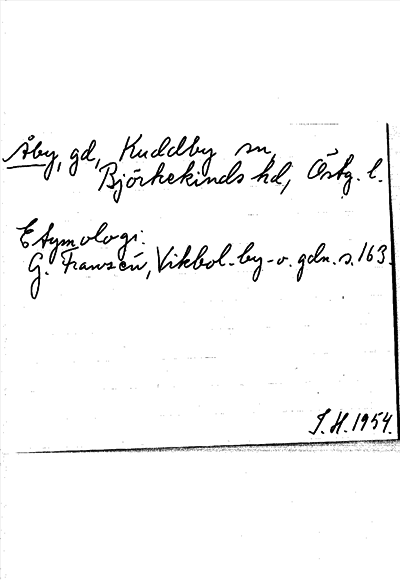 Åby, gd, Kuddby sn,
Björkekinds hd, Östg. l.
Etymologi:
G. Franzén, Vikbol. by- o. gdn. s. 163.
I. H. 1954.